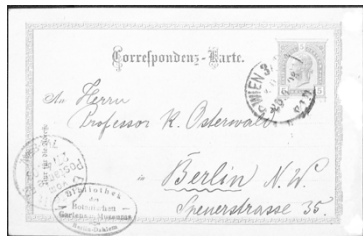 Correspondenz-Karte.
WIEN
An Herrn
Professor K. Osterwald
Berlin N.W.
Speuerstrasse 35.
Bibliothek
des
Botanischen
Gartens u. Museums
Berlin-Dahlem